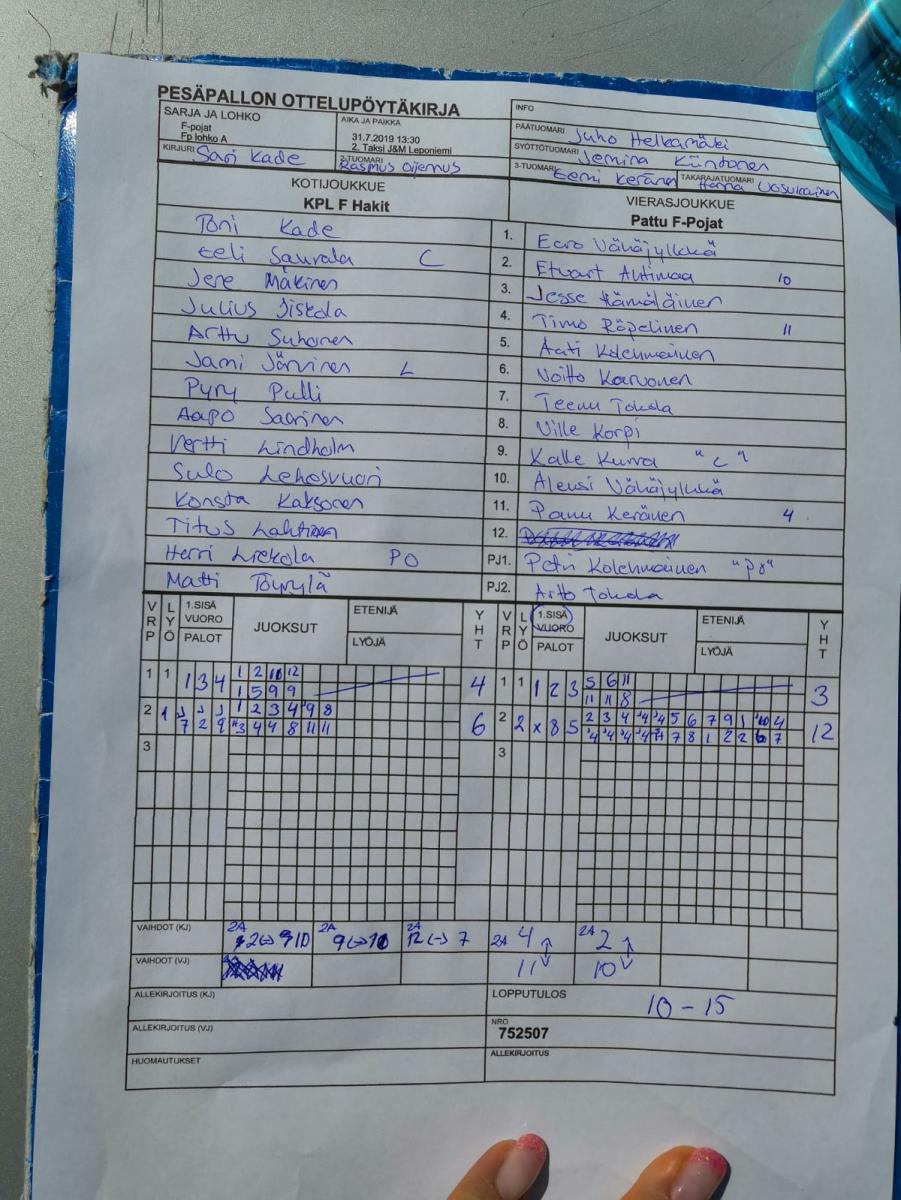 PESÄPALLON OTTELUPÖYTÄKIRJA
SARJA JA LOHKO
F-pojat
Fp lohko A
AIKA JA PAIKKA
31.7.2019 13:30
2. Taksi J&M Leponiemi
INFO
PÄÄTUOMARI Juho Helkamäki
KIRJURI Sari Kade
2-TUOMARI Rasmus Oijennus
SYÖTTÖTUOMARI Jemina Kiintonen
3-TUOMARI Eemi Keränen TAKARAJATUOMARI Hanna
KOTIJOUKKUE
KPL F Hakit
VIERASJOUKKUE
Pattu F-Pojat
Toni Kade 1. Eero Vähäjylkkä
Eeli Saurala C 2. Etuart Autimaa 10
Jere Mäkinen 3. Jesse Hämäläinen
Julius Jiskola 4. Timo Röpelinen 11
Arttu Suhonen 5. Aati Kolehmainen
Jami Järvinen L 6. Voitto Karvonen
Pyry Pulli 7. Teemu Tokola
Aapo Saarinen 8. Ville Korpi
Vertti Lindholm 9. Kalle Kurra "C"
Sulo Lehosvuori 10. Aleksi Vähäjylkkä
Konsta Kaksonen 11. Panu Keränen 4
Titus Lahtinen 12.
Herri Liekola PO PJ1. Petri Kolehmainen "PO"
Matti Töyrylä PJ2. Arto Tokola
VRP LYÖ 1.SISÄ VUORO PALOT JUOKSUT ETENIJÄ LYÖJÄ YHT VRP LYÖ 1.SISÄ VUORO PALOT JUOKSUT ETENIJÄ LYÖJÄ YHT
1 1 1 3 4 1 2 10 12 4 1 1 1 2 3 5 6 11 3
1 5 9 9 11 11 8
2 1 7 2 9 1 2 3 4 9 8 6 2 2 x 8 5 2 3 4 4 4 5 6 7 9 1 10 4 12
3 4 4 8 11 11 4 4 4 4 7 7 8 1 2 2 6 7
3 3
VAIHDOT (KJ) 2A 12<->910 2A 9<->10 2A 12<->7 2A 4 2A 2
VAIHDOT (VJ) 11 10
ALLEKIRJOITUS (KJ) LOPPUTULOS 10 - 15
ALLEKIRJOITUS (VJ) NRO 752507
HUOMAUTUKSET ALLEKIRJOITUS